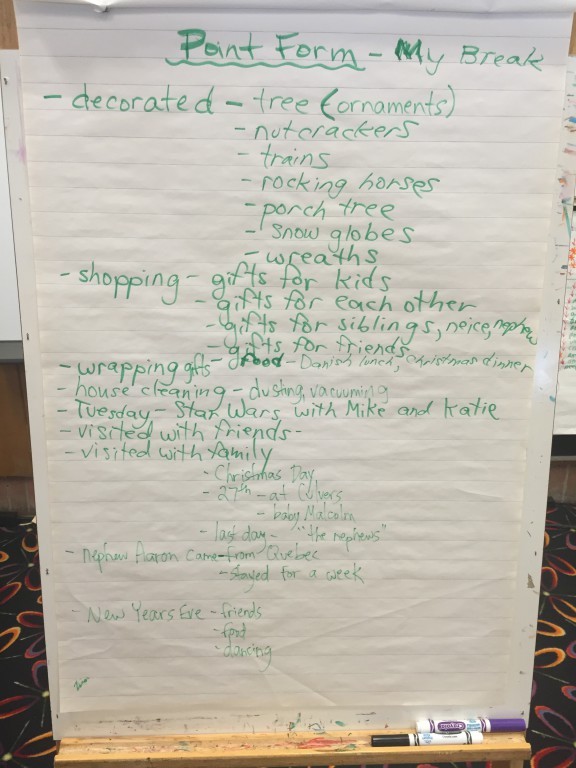 Point Form - My Break
- decorated - tree (ornaments)
- nutcrackers
- trains
- rocking horses
- porch tree
- snow globes
- wreaths
- shopping - gifts for kids
- gifts for each other
- gifts for siblings, neice, nephew
- gifts for friends
- wrapping gifts - food - Danish lunch, christmas dinner
- house cleaning - dusting, vacuuming
- Tuesday - Star Wars with Mike and Katie
- visited with friends -
- visited with family
- Christmas Day
- 27th - at Culvers
- baby Malcolm
- last day - "the nephews"
- nephew Aaron came from Quebec
- stayed for a week
- New Years Eve - friends
- food
- dancing
Crayola